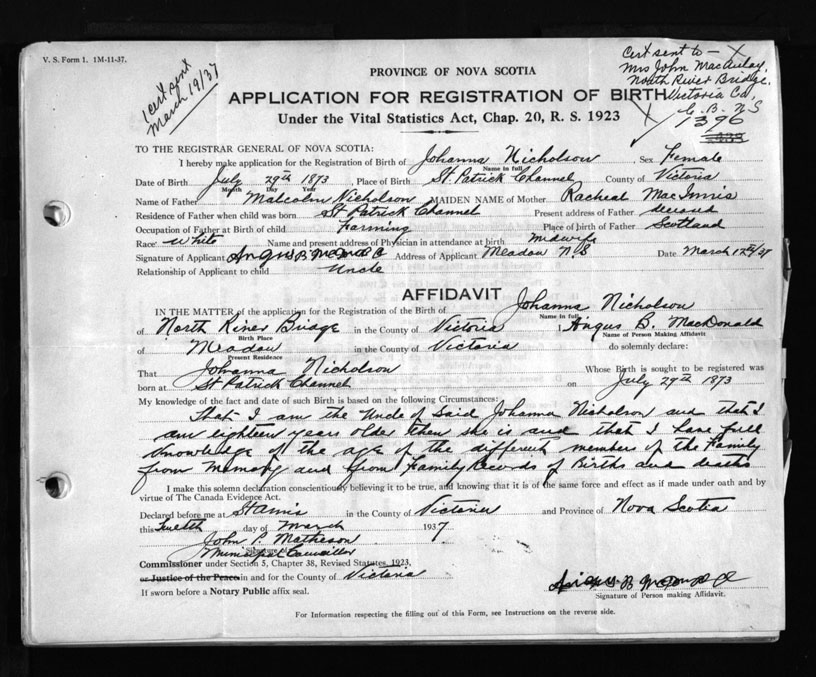 V. S. Form 1. 1M-11-37.
1 cert sent
March 19/37
Cert sent to - X
Mrs John MacAulay.
North River Bridge.
Victoria Co.
C. B. N S
1396
PROVINCE OF NOVA SCOTIA
APPLICATION FOR REGISTRATION OF BIRTH
Under the Vital Statistics Act, Chap. 20, R. S. 1923
TO THE REGISTRAR GENERAL OF NOVA SCOTIA:
I hereby make application for the Registration of Birth of Johanna Nicholson Sex Female
Name in full
Date of Birth July 29th 1873, Place of Birth St Patrick Channel County of Victoria
Month Day Year
Name of Father Malcolm Nicholson MAIDEN NAME of Mother Racheal MacInnis
Residence of Father when child was born St Patrick Channel Present address of Father deceased
Occupation of Father at Birth of child Farming Place of birth of Father Scotland
Race White Name and present address of Physician in attendance at birth midwife
Signature of Applicant Angus B Address of Applicant Meadow N S Date March 12th/37
Relationship of Applicant to child Uncle
AFFIDAVIT
IN THE MATTER of the application for the Registration of the Birth of Johanna Nicholson
Name in full
of North River Bridge in the County of Victoria I, Angus B. MacDonald
Birth Place Name of Person Making Affidavit
of Meadow in the County of Victoria do solemnly declare:
Present Residence
That Johanna Nicholson Whose Birth is sought to be registered was
born at St Patrick Channel on July 29th 1873
My knowledge of the fact and date of such Birth is based on the following Circumstances:
That I am the Uncle of Said Johanna Nicholson and that I
am eighteen years older then she is and that I have full
Knowledge of the age of the different members of the Family
from Memory and from Family Records of Births and deaths
I make this solemn declaration conscientiously believing it to be true, and knowing that it is of the same force and effect as if made under oath and by
virtue of The Canada Evidence Act.
Declared before me at St Anns in the County of Victoria and Province of Nova Scotia
this Twelth day of March 1937
John P. Matheson
Signature
Municipal Councillor
Commissioner under Section 5, Chapter 38, Revised Statutes, 1923,
or Justice of the Peace in and for the County of Victoria
If sworn before a Notary Public affix seal.
Angus B
Signature of Person making Affidavit.
For Information respecting the filling out of this Form, see Instructions on the reverse side.